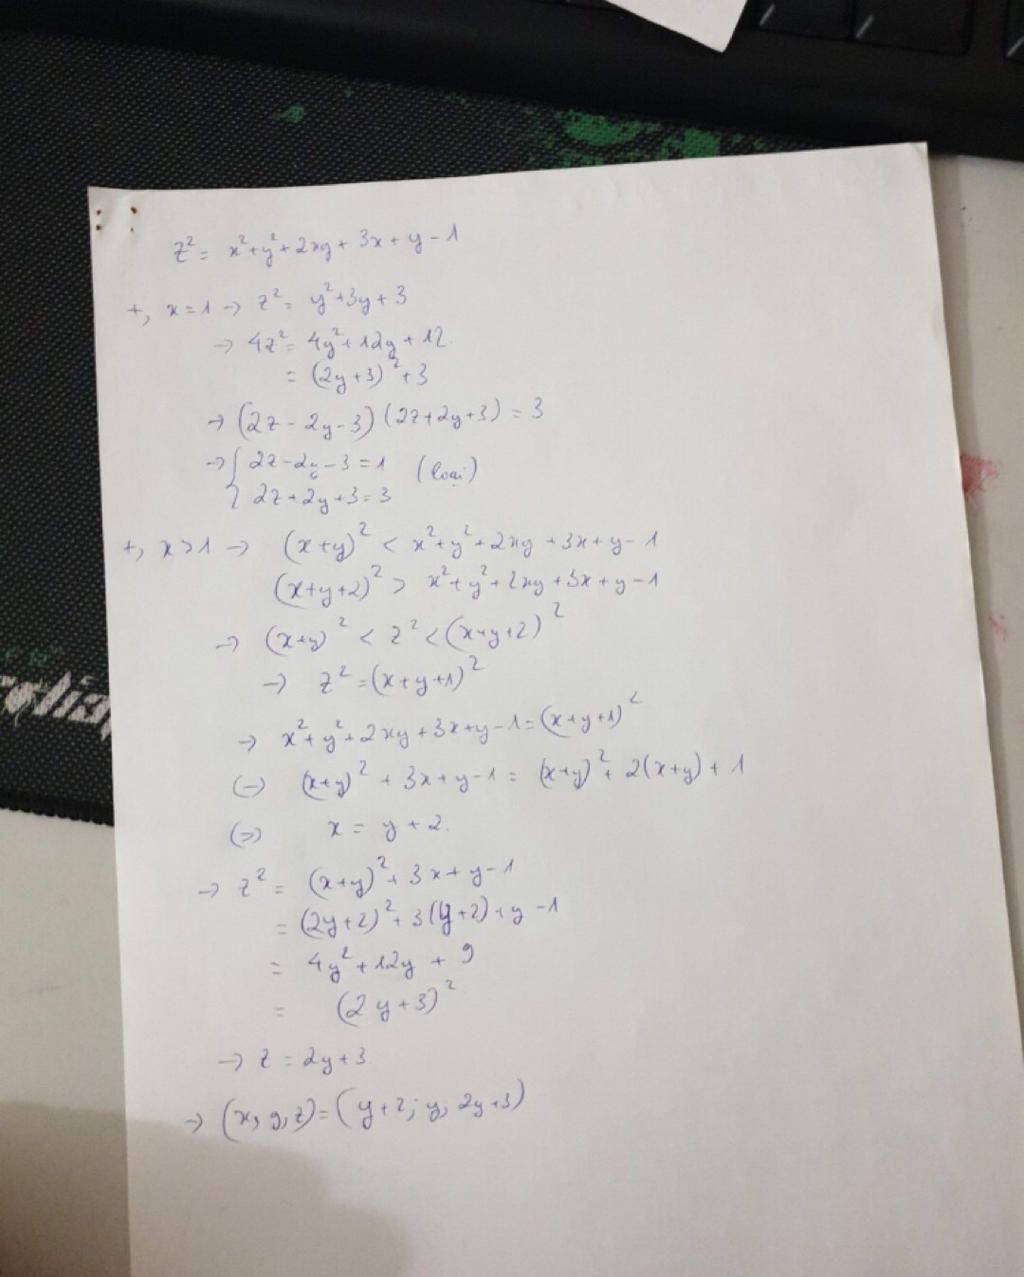 z² = x² + y² + 2xy + 3x + y - 1
+, x = 1 → z² = y² + 3y + 3
→ 4z² = 4y² + 12y + 12
= (2y + 3)² + 3
→ (2z - 2y - 3)(2z + 2y + 3) = 3
→ { 2z - 2y - 3 = 1 (loại)
2z + 2y + 3 = 3
+, x > 1 → (x+y)² < x² + y² + 2xy + 3x + y - 1
(x+y+2)² > x² + y² + 2xy + 3x + y - 1
→ (x+y)² < z² < (x+y+2)²
→ z² = (x+y+1)²
→ x² + y² + 2xy + 3x + y - 1 = (x+y+1)²
(=) (x+y)² + 3x + y - 1 = (x+y)² + 2(x+y) + 1
(=) x = y + 2.
→ z² = (x+y)² + 3x + y - 1
= (2y+2)² + 3(y+2) + y - 1
= 4y² + 12y + 9
= (2y+3)²
→ z = 2y + 3
→ (x, y, z) = (y+2; y; 2y+3)